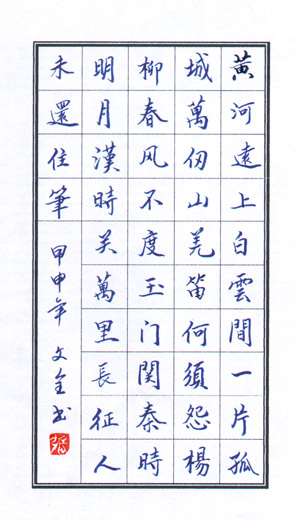 黄河遠上白雲間一片孤
城萬仞山羌笛何須怨楊
柳春风不度玉门関秦時
明月漢時关萬里長征人
未還住筆 甲申年 文全书